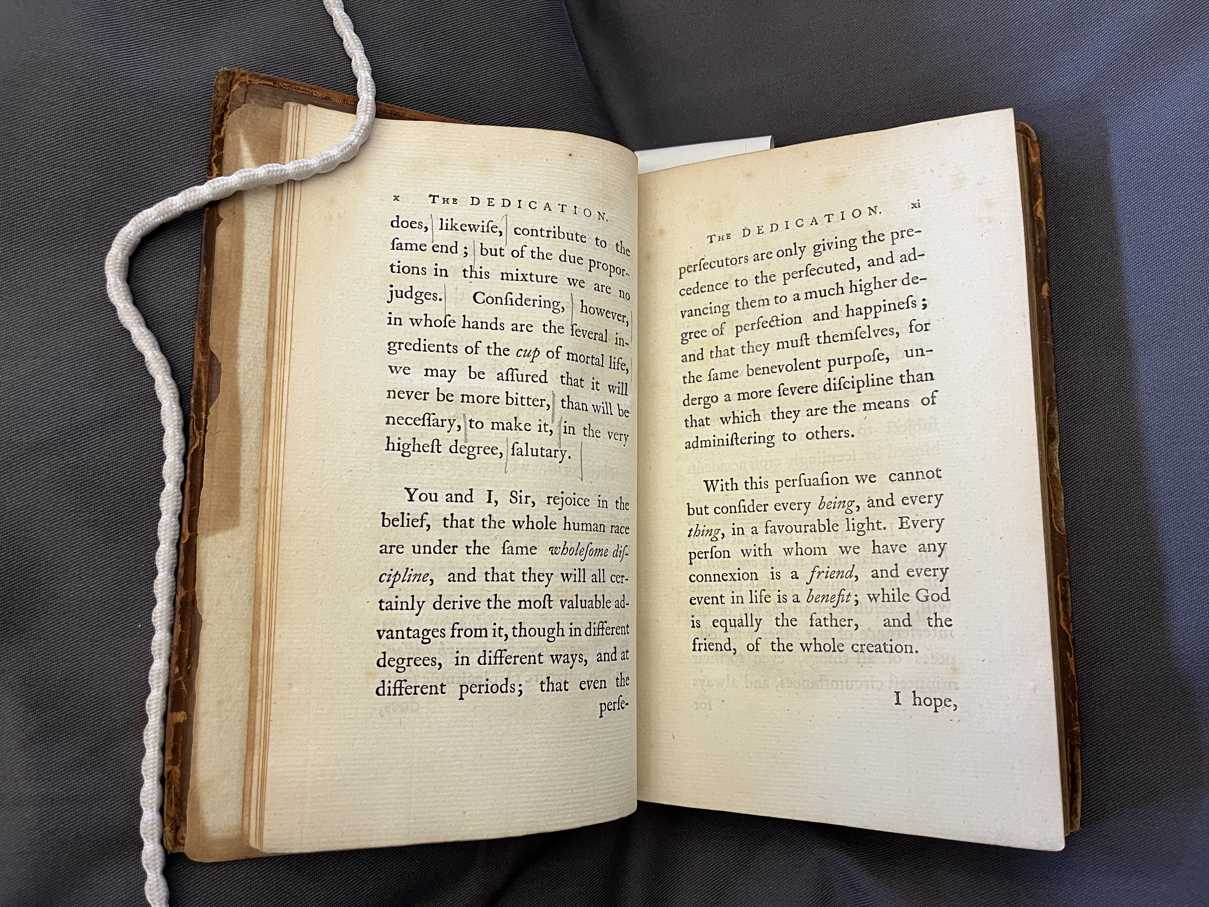 x THE DEDICATION.
does, likewiſe, contribute to the
ſame end; but of the due propor-
tions in this mixture we are no
judges. Conſidering, however,
in whoſe hands are the ſeveral in-
gredients of the cup of mortal life,
we may be aſſured that it will
never be more bitter, than will be
neceſſary, to make it, in the very
higheſt degree, ſalutary.
You and I, Sir, rejoice in the
belief, that the whole human race
are under the ſame wholeſome diſ-
cipline, and that they will all cer-
tainly derive the moſt valuable ad-
vantages from it, though in different
degrees, in different ways, and at
different periods; that even the
perſe-
THE DEDICATION. xi
perſecutors are only giving the pre-
cedence to the perſecuted, and ad-
vancing them to a much higher de-
gree of perfection and happineſs;
and that they muſt themſelves, for
the ſame benevolent purpoſe, un-
dergo a more ſevere diſcipline than
that which they are the means of
adminiſtering to others.
With this perſuaſion we cannot
but conſider every being, and every
thing, in a favourable light. Every
perſon with whom we have any
connexion is a friend, and every
event in life is a benefit; while God
is equally the father, and the
friend, of the whole creation.
I hope,